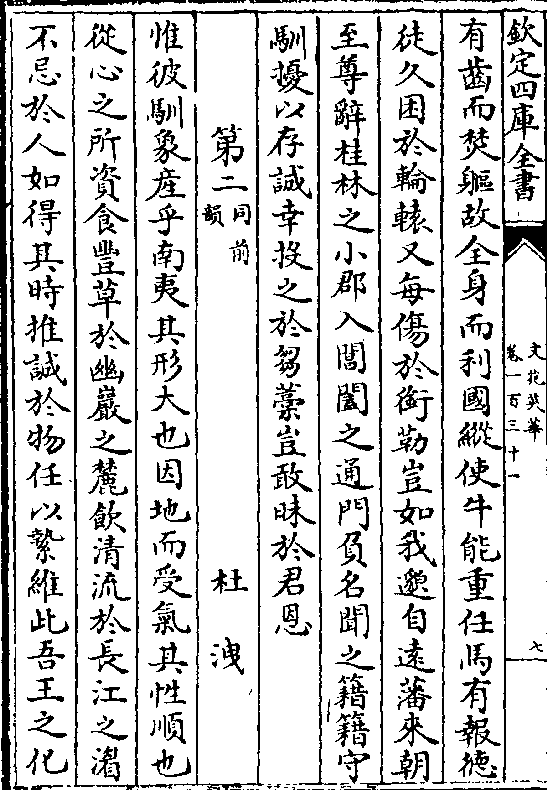 欽定四庫全書
文苑英華
卷一百三十一
七
有齒而焚軀故全身而利國縱使牛能重任馬有報德
徒久困於輪轅又每傷於銜勒豈如我邈自遠藩來朝
至尊辭桂林之小郡入閶闔之通門負名聞之籍籍守
馴擾以存誠幸投之於芻藁豈敢昧於君恩
第二同前韻 杜洩
惟彼馴象產乎南夷其形大也因地而受氣其性順也
從心之所資食豐草於幽巖之麓飲清流於長江之湄
不忌於人如得其時推誠於物任以縶維此吾王之化